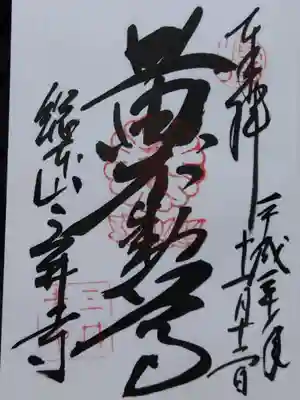 奉拝 平成二十年
十一月
黄不動尊
総本山三井寺